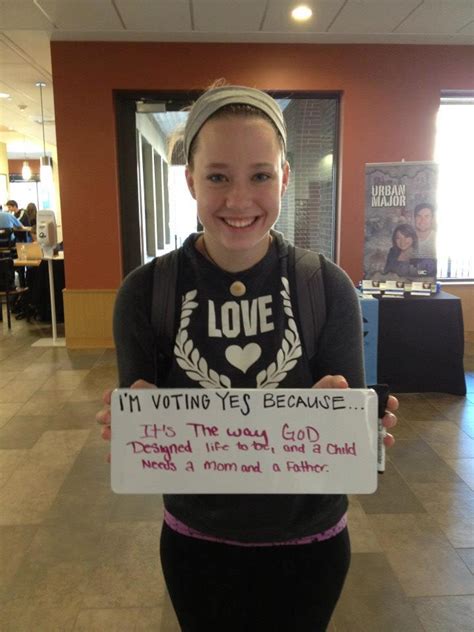 URBAN
MAJOR
LOVE
I'M VOTING YES BECAUSE...
It's The way GOD
Designed life to be, and a Child
Needs a Mom and a Father.